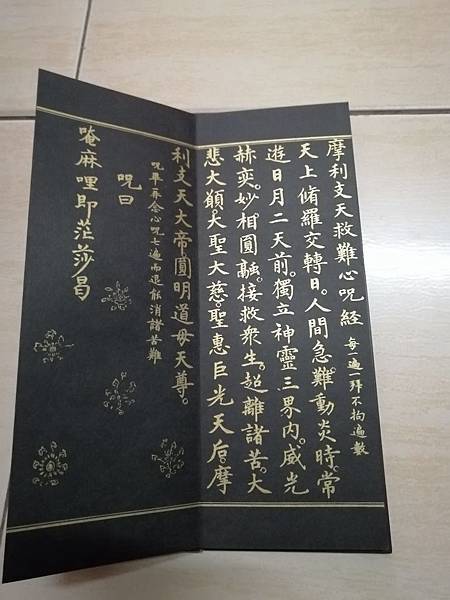 摩利支天救難心呪経 每一遍一拜不拘遍數
天上脩羅交轉日。人間急難動炎時。常
遊日月二天前。獨立神靈三界內。威光
赫奕。妙相圓融。接救眾生。超離諸苦。大
悲大願。大聖大慈。聖惠巨光天后。摩
利支天大帝圓明道母天尊。
呪畢再念心呪七遍而退能消諸苦難
呪曰
唵麻哩即茫莎昌